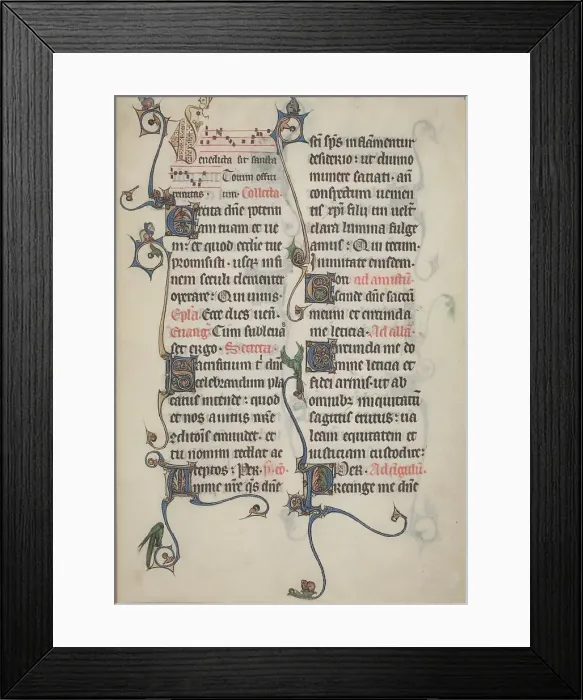 enedicta sit sancta
Totum offm
trinitas. mr. Collecta.
Excita dñe potenti
am tuam et ve
ni: et quod ecclie tue
promisisti. usq; infi
nem seculi clementer
operare: Qui vivis.
Epla Ecce dies veñ.
Evang Cum subleva
set ergo. Secreta.
Sacrificium t dñe
celebrandum pla
catus intende: quod
et nos a vitiis nr̃e
ꝯditois emundet. et
tuo nomini reddat ac
ceptos: Per. ꝯ̃o.
Anime nr̃e q̃s dñe
sc̃i sp̃s inflamentur
desiderio: ut divino
munere satiati. añ
conspectum venien
tis xp̃i filij tui velut
clara lumina fulge
amus: Qui tecum.
in unitate eiusdem.
Con ad amictũ.
Scinde dñe saccũ
meum et circunda
me leticia. Ad albã.
Circunda me co
mpne leticia et
fidei armis. ut ab
omnibꝫ iniquitatũ
sagittis erutus: va
leam equitatem et
iusticiam custodire:
Per. Ad cigulũ.
Precinge me dñe